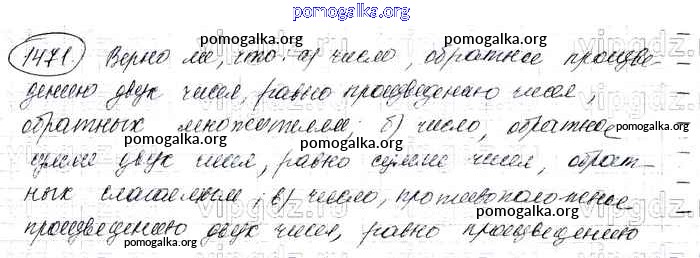 pomogalka.org
1471. Верно ли, что: а) число, обратное произве-
pomogalka.org
дению двух чисел, равно произведению чисел,
pomogalka.org
обратных множителям; б) число, обратное
pomogalka.org pomogalka.org
сумме двух чисел, равно сумме чисел, обрат-
pomogalka.org
ных слагаемым; в) число, противоположное
pomogalka.org pomogalka.org
произведению двух чисел, равно произведению
pomogalka.org